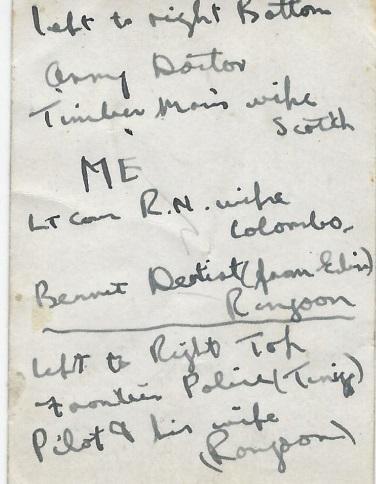 left to right Bottom
Army Doctor
Timber Man's wife
Scotch
ME
Lt Com R.N. wife
Colombo.
Bennet Dentist (from Edin)
Rangoon
left to Right Top
Frontier Police
Pilot & his wife
(Rangoon)